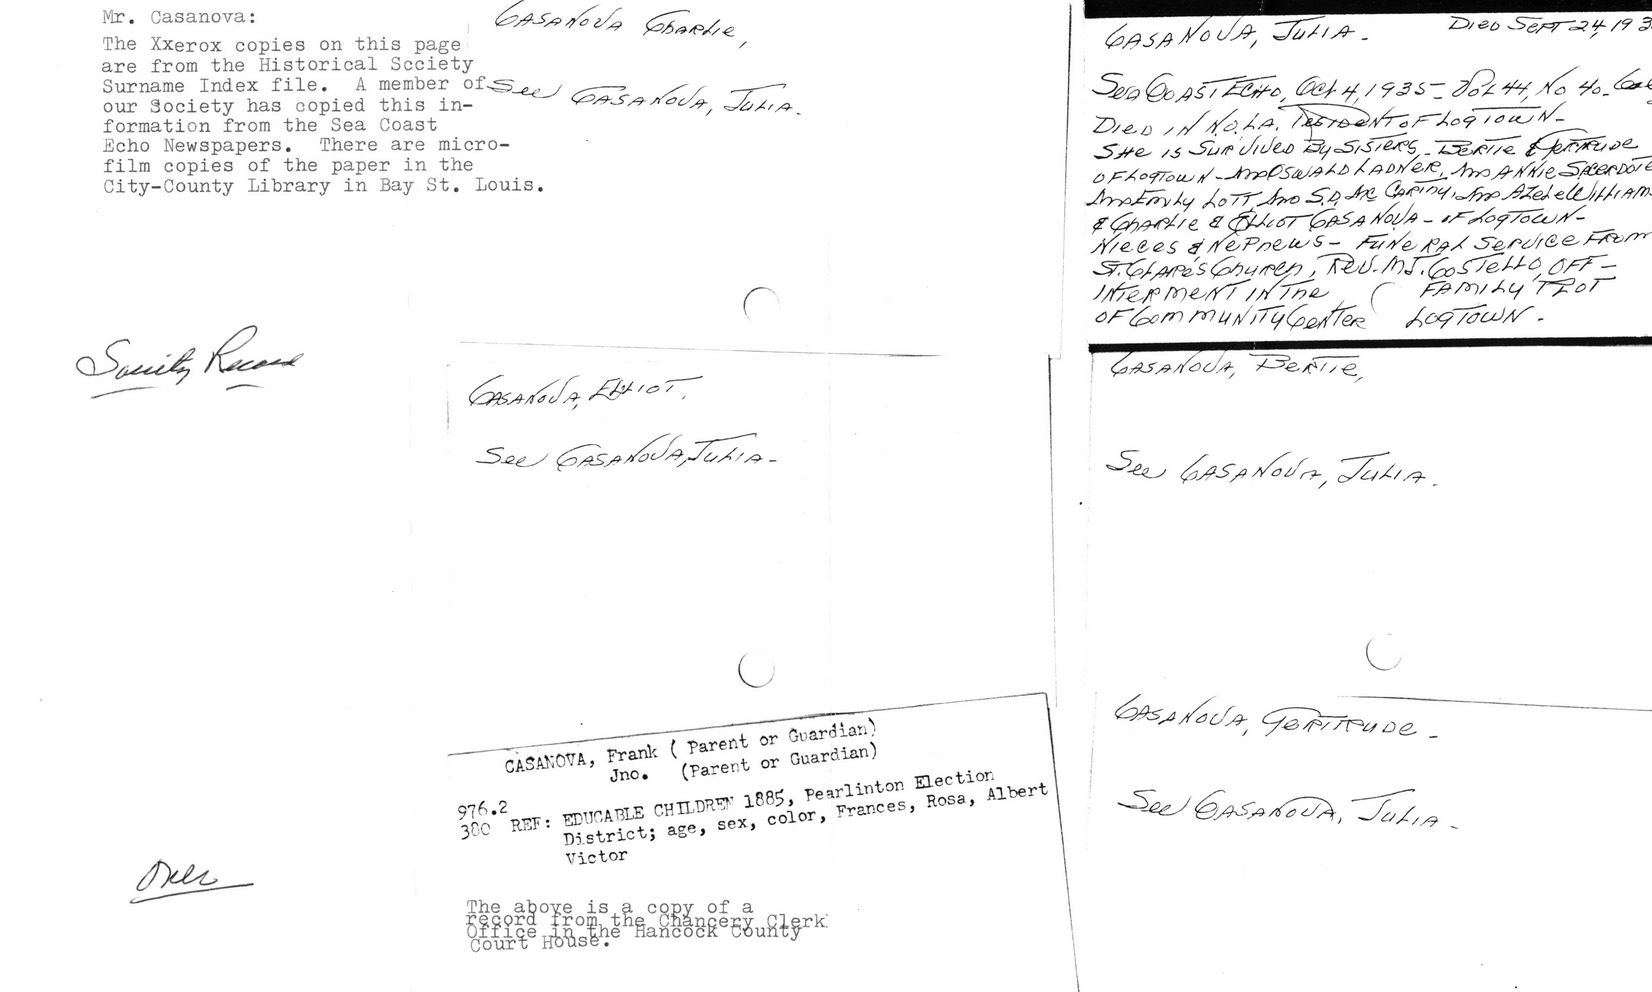 Mr. Casanova:
The Xxerox copies on this page
are from the Historical Society
Surname Index file.  A member of
our Society has copied this in-
formation from the Sea Coast
Echo Newspapers.  There are micro-
film copies of the paper in the
City-County Library in Bay St. Louis.
Society Record
Over
CASANOVA Charlie,
See CASANOVA, JULIA.
CASANOVA, ELLIOT.
See CASANOVA, JULIA-
CASANOVA, Frank ( Parent or Guardian)
Jno.   (Parent or Guardian)
976.2
380 REF: EDUCABLE CHILDREN 1885, Pearlinton Election
District; age, sex, color, Frances, Rosa, Albert
Victor
The above is a copy of a
record from the Chancery Clerk
Office in the Hancock County
Court House.
CASANOVA, JULIA. DIED SEPT 24, 193
SEA COAST ECHO, OCT 4, 1935- VOL 44, NO 40.
DIED IN N.O. LA. RESIDENT OF LOGTOWN-
SHE IS SURVIVED By SISTERS, BERTIE & GERTRUDE
OF LOGTOWN- MRS OSWALD LADNER, MRS ANNIE SACERDOTE
MRS EMILY LOTT, MRS S.D. MC CARTHY, MRS AZELE WILLIAMS
& CHARLIE & ELLIOT CASANOVA- OF LOGTOWN-
NIECES & NEPHEWS- FUNERAL SERVICE FROM
ST. CLARE'S CHURCH, REV. M.J. COSTELLO, OFF-
INTERMENT IN THE FAMILY PLOT
OF COMMUNITY CENTER LOGTOWN.
CASANOVA, BERTIE,
See CASANOVA, JULIA.
CASANOVA, GERTRUDE-
See CASANOVA, JULIA-